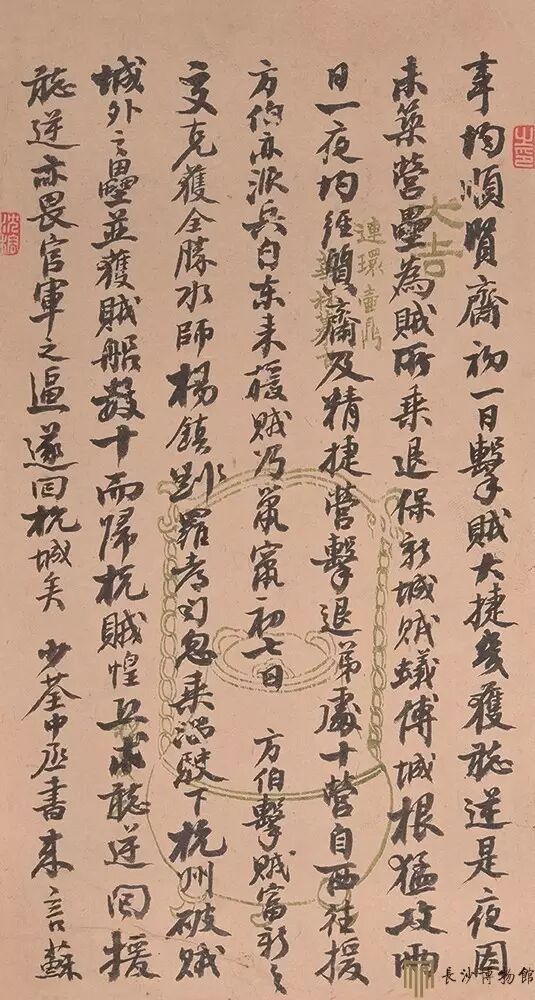 事均順賢齋初一日擊賊大捷幾獲聽逆是夜因
未築營壘為賊所乘退保新城賊蟻傅城根猛攻兩
日一夜均經賢齋及精捷營擊退弟處十營自西往援
方伯亦派兵自東來援賊乃鼠竄初七日 方伯擊賊富新之
交克獲全勝水師楊鎮劉羅等急乘潮駛下杭州破賊
城外之壘並獲賊船數十而歸杭賊惶亟求聽逆回援
聽逆亦畏官軍之逼遂回杭城矣 少荃中丞書來言蘇
大吉
連環壺
之印
長沙博物館